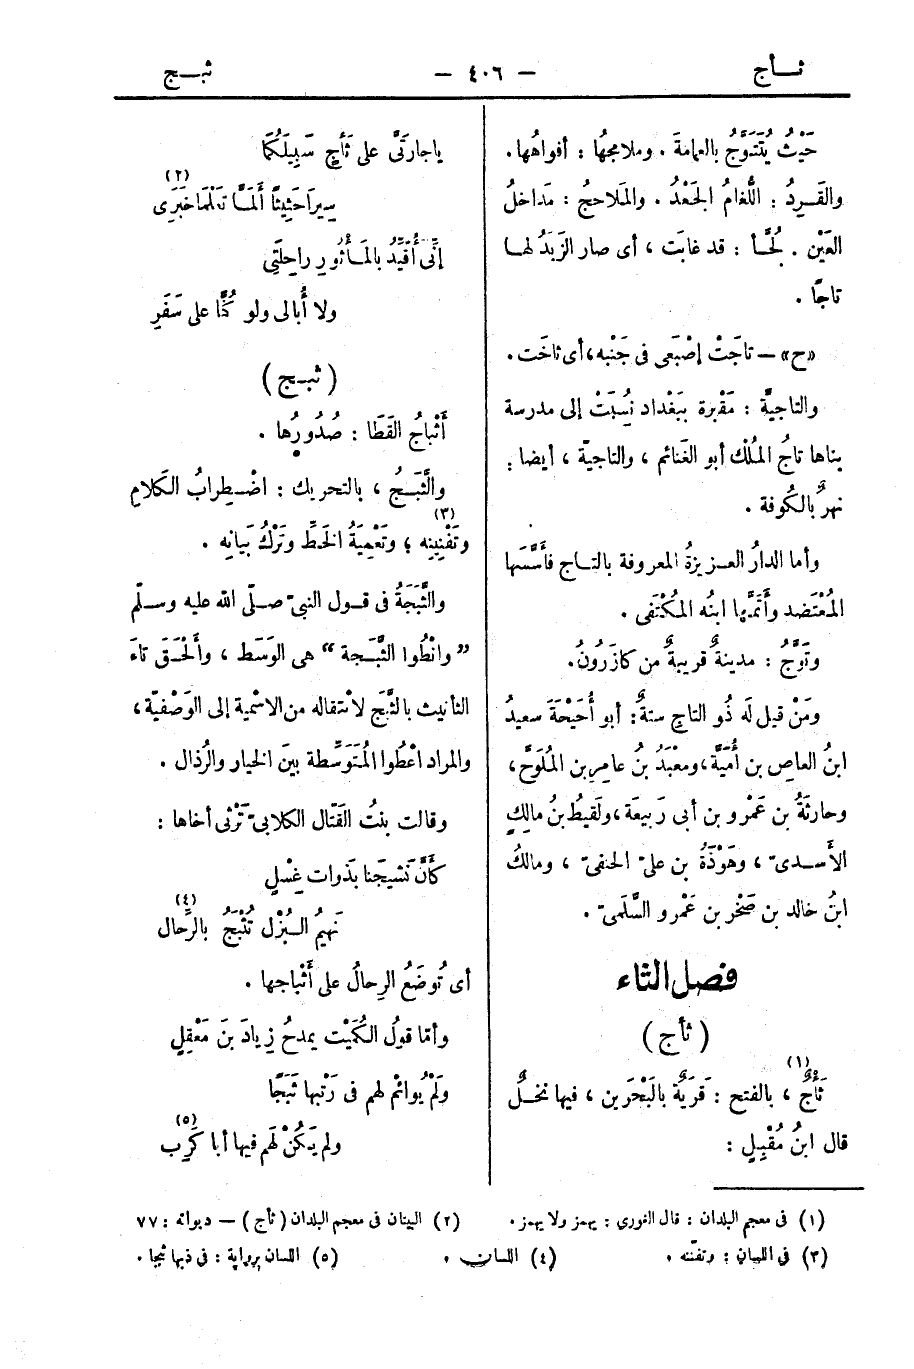 ثـأج
— ٤٠٦ —
ثبـج
حَيْثُ يُتَتَوَّجُ بالعِمامة . وملامجُها : أفواهُها .
والقَرِدُ : اللُّغامُ الجَعْدُ . والمَلاحجُ : مَداخلُ
العَيْن . لُحَّأ : قد غابَت ، أى صار الزَبَدُ لهـا
تاجًا .
«ح» — تاجَتْ إصْبَعى فى جَنْبه، أى ثاخَت .
والتاجيَّة : مَقْبرة ببَغْداد نُسِبَتْ إلى مدرسة
بناها تاجُ المُلْك أبو الغَنائم ، والتاجيّة ، أيضا :
نهرٌ بالكُوفة .
وأما الدارُ العـزيزةُ المعروفة بالتـاج فأَسَّسَها
المُعْتَضد وأَتمَّها ابنُه المكْتَفى .
وتَوَّجُ : مدينةٌ قريبةٌ من كازَرُونَ .
ومَنْ قيل لَه ذُو التاجِ ستةٌ : أبو أُحَيْحَةَ سعيدُ
ابنُ العاص بن أُمَيَّة ، ومعْبَدُ بنُ عامرِ بن المُلَوَّح ،
وحارثَةُ بن عَمْرو بن أبى رَبيعَة ، ولَقيطُ بنُ مالكٍ
الأَسـدىّ ، وهَوْذَةُ بن علىّ الحنفىّ ، ومالكُ
ابنُ خالد بن صَخْر بن عَمْرو السُّلَمىّ .
فصل الثاء
( ثأج )
(١)
ثَأْجٌ ، بالفتح : قَرْيَةٌ بالبَحْرين ، فيها نخلٌ
قال ابنُ مُقْبِلٍ :
ياجارتَىَّ على ثَأْجٍ سَبِيلَكُمَا
(٢)
سِيرَا حَثِيثًا أَلَمَّا تَعْلَمَا خَبَرِى
إنِّى أُقَيِّدُ بالمَأْثُورِ راحِلَتِى
ولا أُبالى ولو كُنَّا على سَفَرِ
( ثبـج )
أَثْباجُ القَطَا : صُدُورُها .
والثَّبَـجُ ، بالتحريك : اضْـطِرابُ الكَلامِ
(٣)
وتَفْنِينِه ؛ وتَعْمِيَةُ الخَطِّ وتَرْكُ بَيانِه .
والثَّبَجَةُ فى قـول النبىّ صـلّى الله عليه وسـلّم
” وانْطُوا الثَّبَـجة “ هى الوَسَط ، وأَلْحَـقَ تاءَ
التأنيث بالثَّبَج لانتقاله من الاسْمية إلى الوَصْفيّة ،
والمراد اعْطُوا المُتَوَسِّطة بينَ الخيار والرُذال .
وقالت بنتُ القَتّال الكلابىّ تَرْثى أخاها :
كَأَنَّ نَشيجَنا بذَوات غِسْلٍ
(٤)
نَهيمُ البُزْل تُثْبَجُ بالرِّحال
أى تُوضَعُ الرِحالُ على أَثْباجها .
وأمّا قولُ الكُمَيْت يمدحُ زِيادَ بنَ مَعْقِلٍ
وَلَمْ يُوائمْ لهم فى رَتْبها ثَبَجًا
(٥)
ولم يَكُنْ لَهم فيها أبا كَرِب
(١) فى معجم البلدان : قال الغورى : يهمز ولا يهمز .
(٢) البيتان فى معجم البلدان ( ثأج ) — ديوانه : ٧٧
(٣) فى اللسان : وتفنّنه .
(٤) اللسان .
(٥) اللسان برواية : فى ذبها ثبجا .